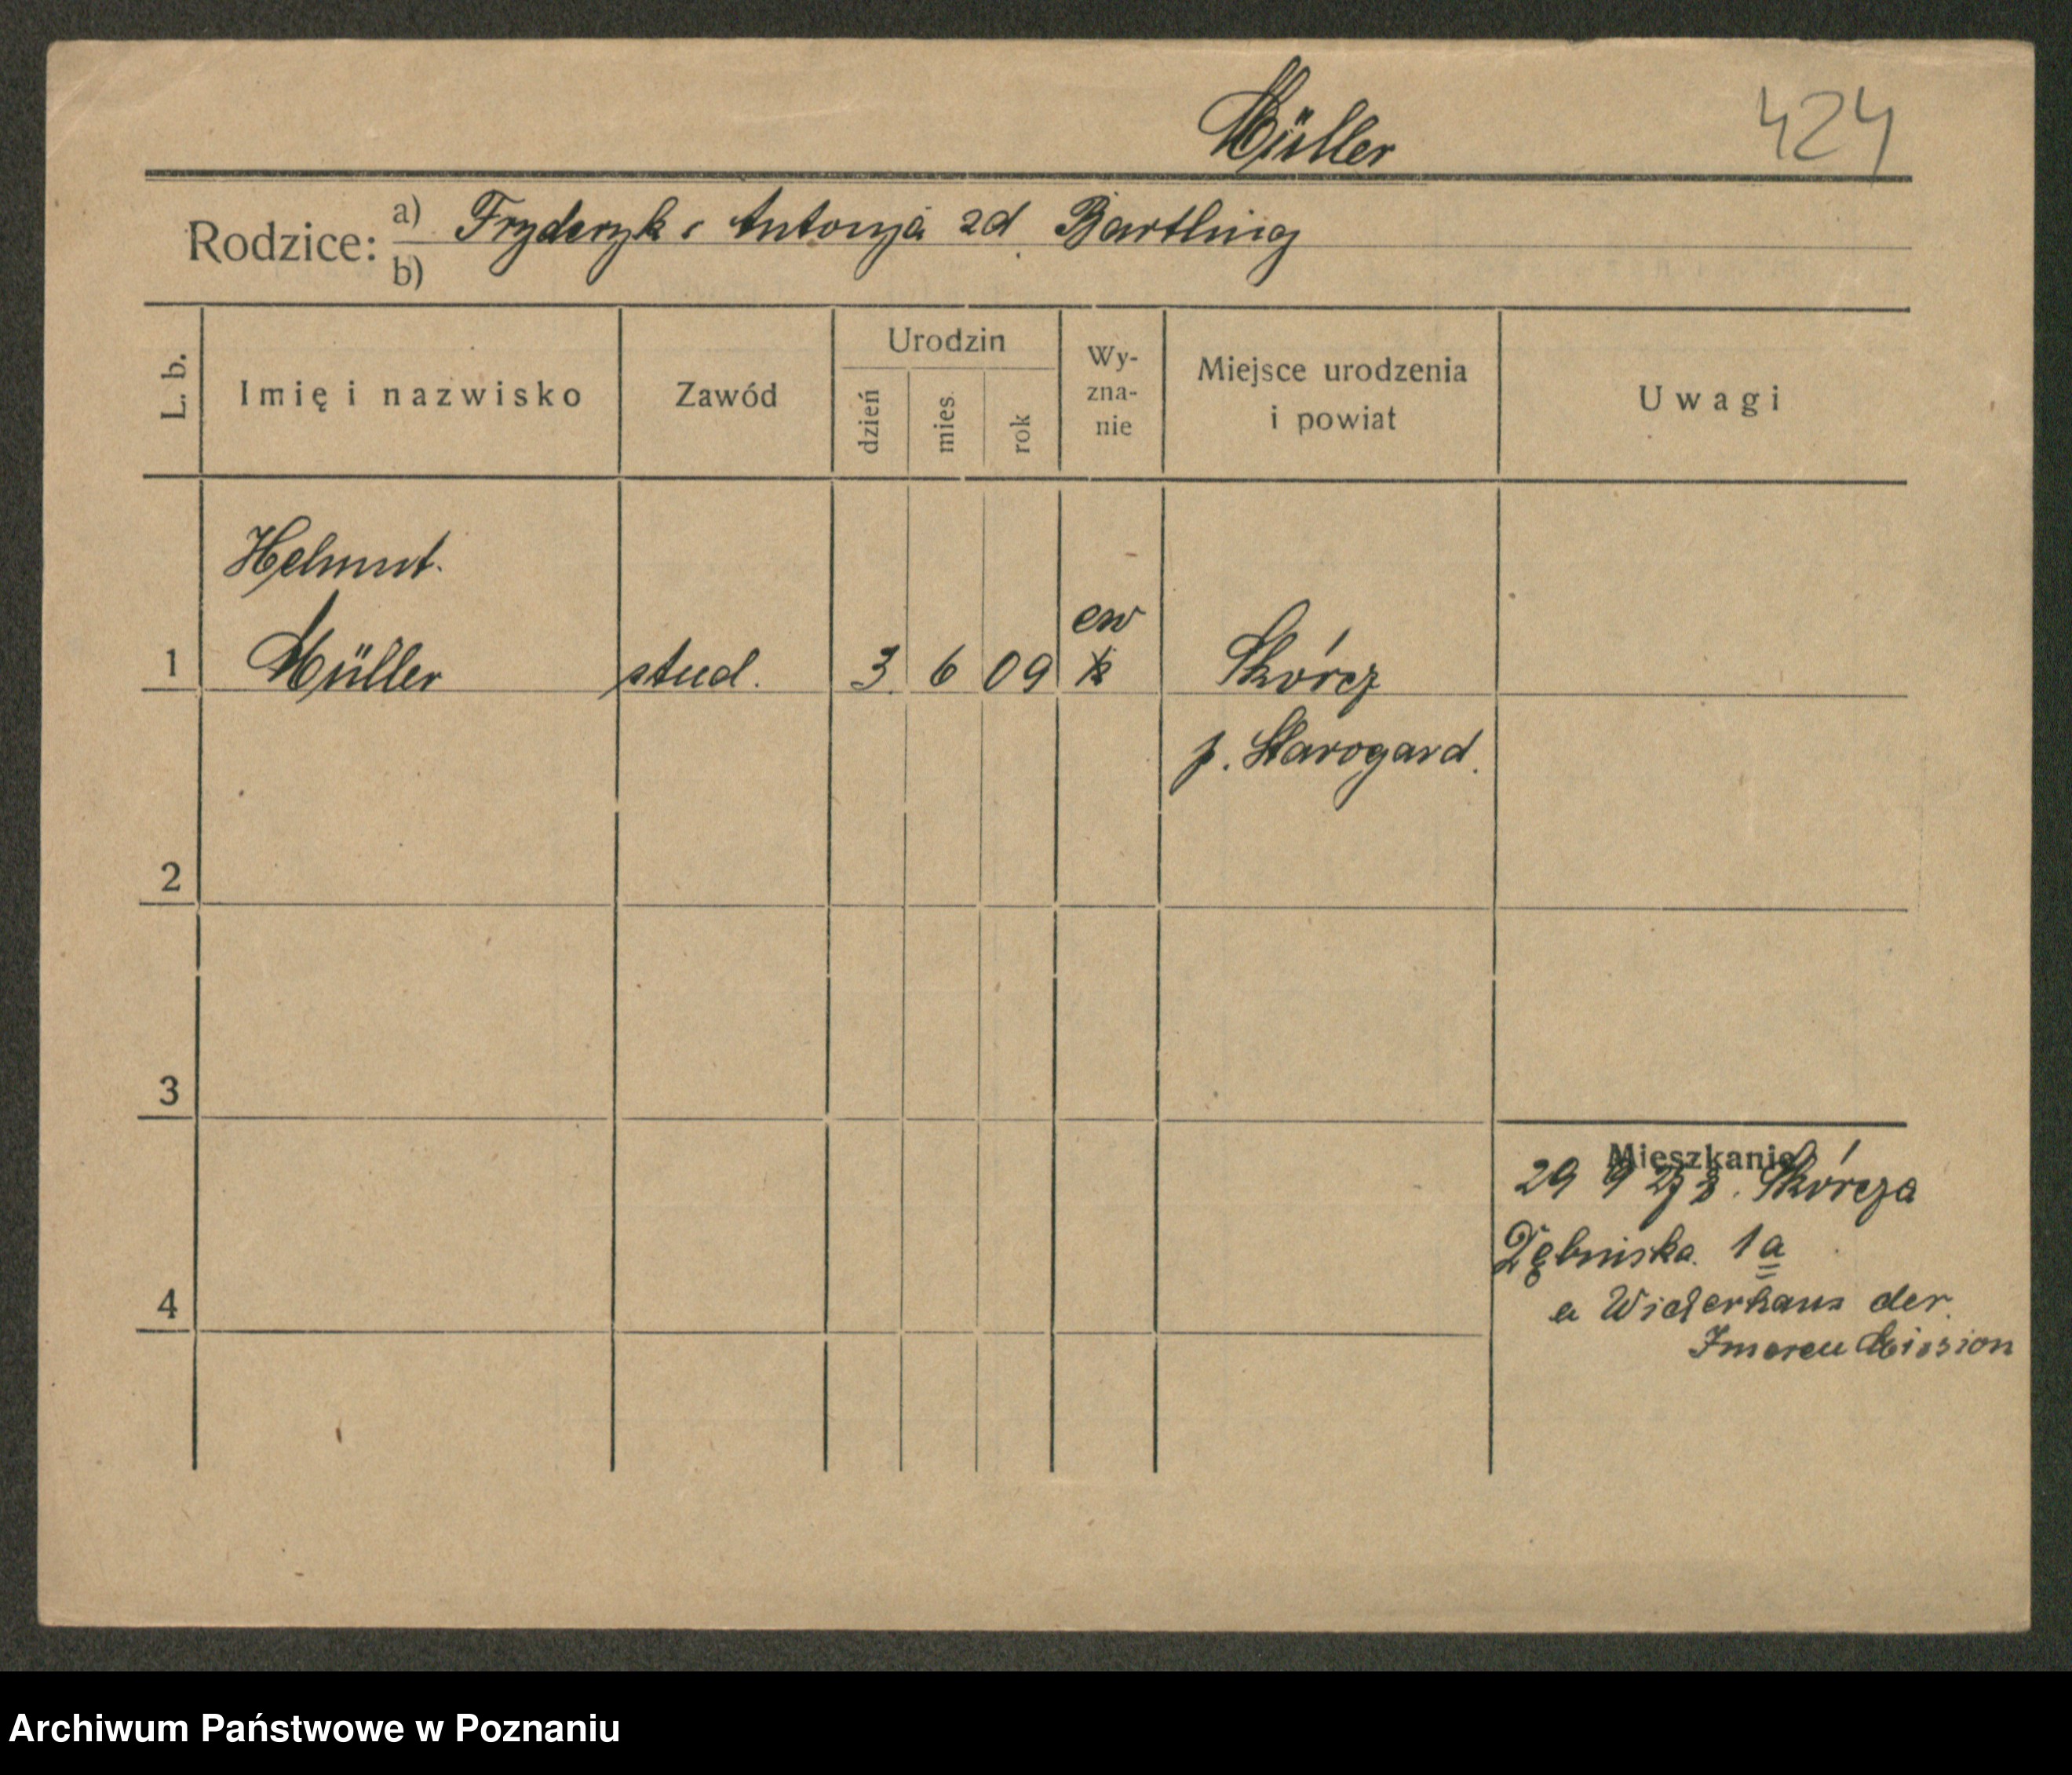 Müller 424
Rodzice: a) Fryderyk i Antonja zd. Bartling
b)
L. b. Imię i nazwisko Zawód Urodzin dzień mies. rok Wy-zna-nie Miejsce urodzenia i powiat Uwagi
Helmut
1 Müller stud. 3. 6 09 ew Skórcz
p. Starogard.
2
3
Mieszkanie
29 9 Skórcza
1a
4
der
Mission
Archiwum Państwowe w Poznaniu